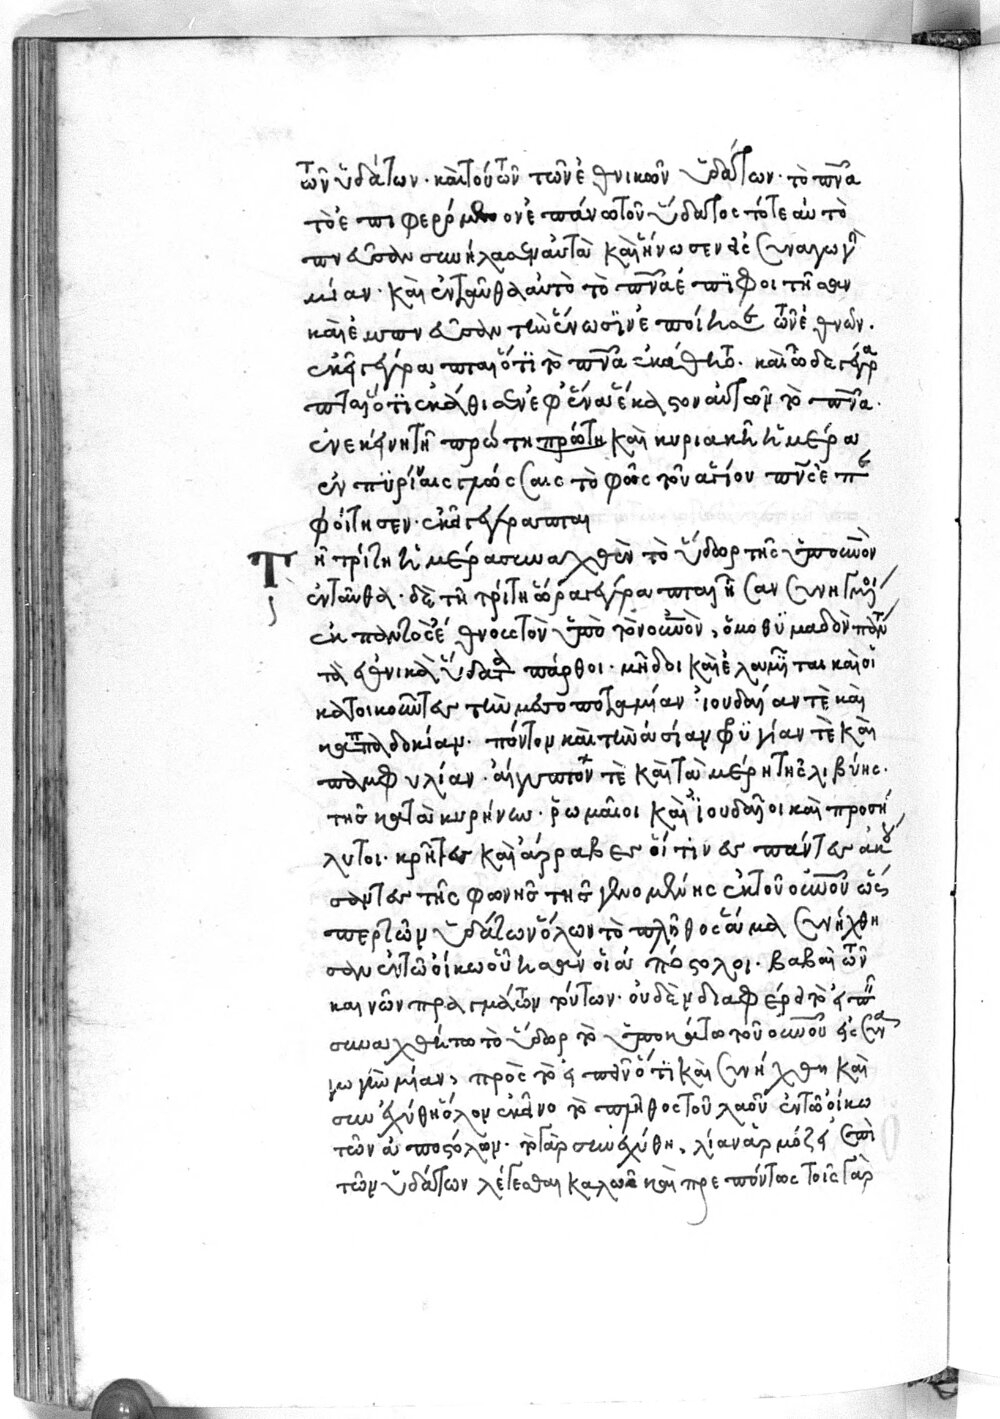 τῶν ὑδάτων· καὶ τούτων τῶν ἐθνικῶν ὑδάτων· τὸ πνα
τὸ ἐπιφερόμενον ἐπάνω τοῦ ὕδατος τότε αὐτὸ
πνεῦσαν συνήλασεν αὐτὰ καὶ ἥνωσεν εἰς συναγωγὴ
μίαν· καὶ ἐνταῦθα αὐτὸ τὸ πνα ἐπιφοιτῆσαν
καὶ ἐμπνεῦσαν τὴν ἕνωσιν ἐποίησε τῶν ἐθνῶν·
ἐκεῖ γέγραπται ὅτι τὸ πνα ἐκάθητο· καὶ ὧδε γέγρα
πται ὅτι ἐκάθισεν ἐφ' ἕνα ἕκαστον αὐτῶν τὸ πνα·
ἐν ἐκείνη τῇ πρώτη πρώτη καὶ κυριακῇ ἡμέρα
ἐν πυρίναις γλώσσαις τὸ φῶς τοῦ ἁγίου πνς ἐπε
φοίτησεν· ἐκεῖ γέγραπται
Τῆ τρίτη ἡμέρα συναχθὲν τὸ ὕδωρ τῆς ὑπὸ οὐνὸν
ἐνταῦθα· δὲ τῆ τρίτη ὥρα γέγραπται ἦσαν συνηγμένοι
ἐκ παντὸς ἔθνους τῶν ὑπὸ τὸν οὐνὸν, ὁμοθυμαδὸν πάντα
τὰ ἐθνικὰ ὕδατα πάρθοι· μῆδοι καὶ ἐλαμῖται καὶ οἱ
κατοικοῦντες τὴν μεσοποταμίαν· ἰουδαίαν τὲ καὶ
καππαδοκίαν· πόντον καὶ τὴν ἀσίαν φρυγίαν τὲ καὶ
παμφυλίαν· αἴγυπτον τὲ καὶ τὰ μέρη τῆς λιβύης·
τῆς κατὰ κυρήνην· ῥωμαῖοι καὶ ἰουδαῖοι καὶ προσή
λυτοι· κρῆτες καὶ ἄρραβες οἵτινες πάντες ἀκού
σαντες τῆς φωνῆς τῆς γενομένης ἐκ τοῦ οὐνοῦ ὥς
περ τῶν ὑδάτων ὅλων τὸ πλῆθος ἅμα συνήχθη
σαν ἐν τῶ οἴκω οὗ ἦσαν οἱ ἀπόστολοι· βαβαὶ τῶν
καινῶν πραγμάτων τούτων· οὐδὲν διαφέρει τὸ εἰπεῖν
συναχθήτω τὸ ὕδωρ τὸ ὑποκάτω τοῦ οὐνοῦ εἰς συνα
γωγὴν μίαν, πρὸς τὸ εἰπεῖν ὅτι καὶ συνήχθη καὶ
συνεχύθη ὅλον ἐκεῖνο τὸ πλῆθος τοῦ λαοῦ ἐν τῶ οἴκω
τῶν ἀποστόλων· τὸ γὰρ συνεχύθη, λίαν ἁρμόζει ἐπὶ
τῶν ὑδάτων λέγεσθαι καλῶς καὶ πρεπόντως τοῖς γὰρ